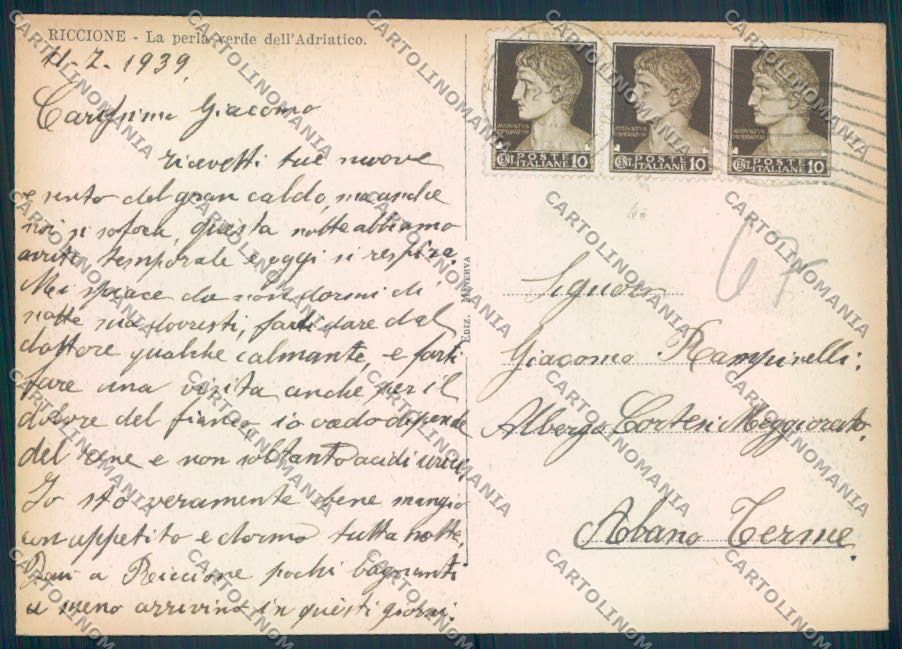 RICCIONE - La perla verde dell'Adriatico.
11-7-1939
Carissimo Giacomo
ricevetti tue nuove
e sento del gran caldo, ma anche
noi si soffoca, questa notte abbiamo
avuto temporale e oggi si respira.
Mi spiace che non dormi di
notte ma dovresti, farti dare dal
dottore qualche calmante, e farti
fare una visita anche per il
dolore del fianco, io vado dipende
del rene e non soltanto acidi urici.
Io sto veramente bene mangio
con appetito e dormo tutta notte.
a Riccione pochi bagnanti
a meno arrivino in questi giorni.
EDIZ. MINERVA
AVGVSTVS IMPERATOR
CENT. POSTE ITALIANE 10
AVGVSTVS IMPERATOR
CENT. POSTE ITALIANE 10
AVGVSTVS IMPERATOR
CENT. POSTE ITALIANE 10
67
Signor
Giacomo Rampinelli:
Albergo Cortesi Meggiorato.
Abano Terme.
CARTOLINOMANIA